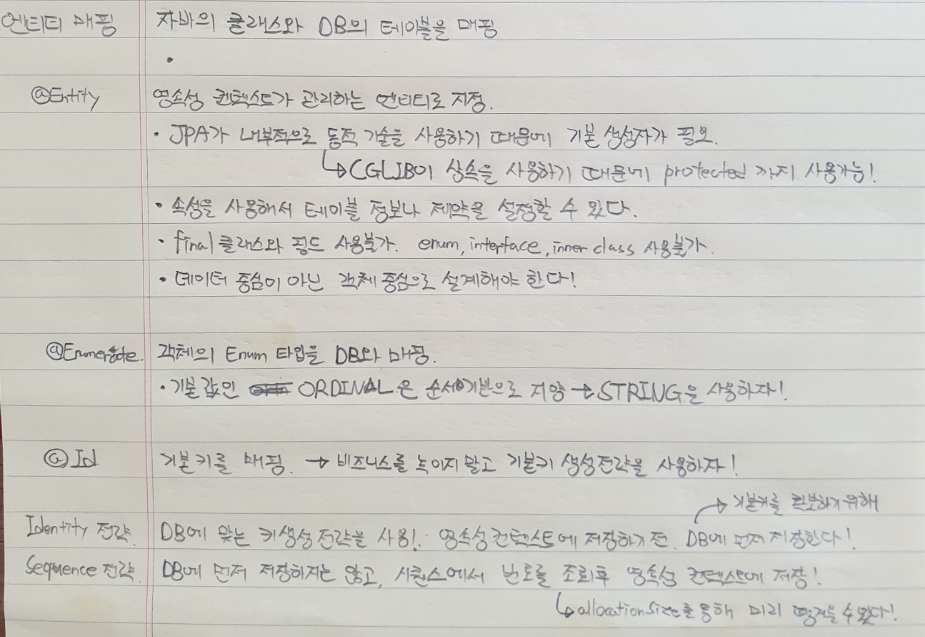 엔티티 매핑 자바의 클래스와 DB의 테이블을 매핑
•
@Entity 영속성 컨텍스트가 관리하는 엔티티로 지정.
• JPA가 내부적으로 동적 기술을 사용하기 때문에 기본 생성자가 필요.
↳ CGLIB이 상속을 사용하기 때문에 protected 까지 사용가능!
• 속성을 사용해서 테이블 정보나 제약을 설정할 수 있다.
• final 클래스와 필드 사용불가. enum, interface, inner class 사용불가.
• 데이터 중심이 아닌 객체 중심으로 설계해야 한다!
객체의 Enum 타입을 DB와 매핑.
• 기본값인 ORDINAL은 순서기반으로 지양 → STRING을 사용하자!
@Id 기본키를 매핑. → 비즈니스를 녹이지 말고 기본키 생성전략을 사용하자!
→ 기본키를 확보하기 위해
Identity 전략 DB에 맞는 키생성 전략을 사용!. 영속성 컨텍스트에 저장하기 전. DB에 먼저 저장한다!
Sequence 전략. DB에 먼저 저장하지는 않고, 시퀀스에서 번호를 조회후 영속성 컨텍스트에 저장!
↳ allocationSize를 통해 미리 땡겨올 수 있다!